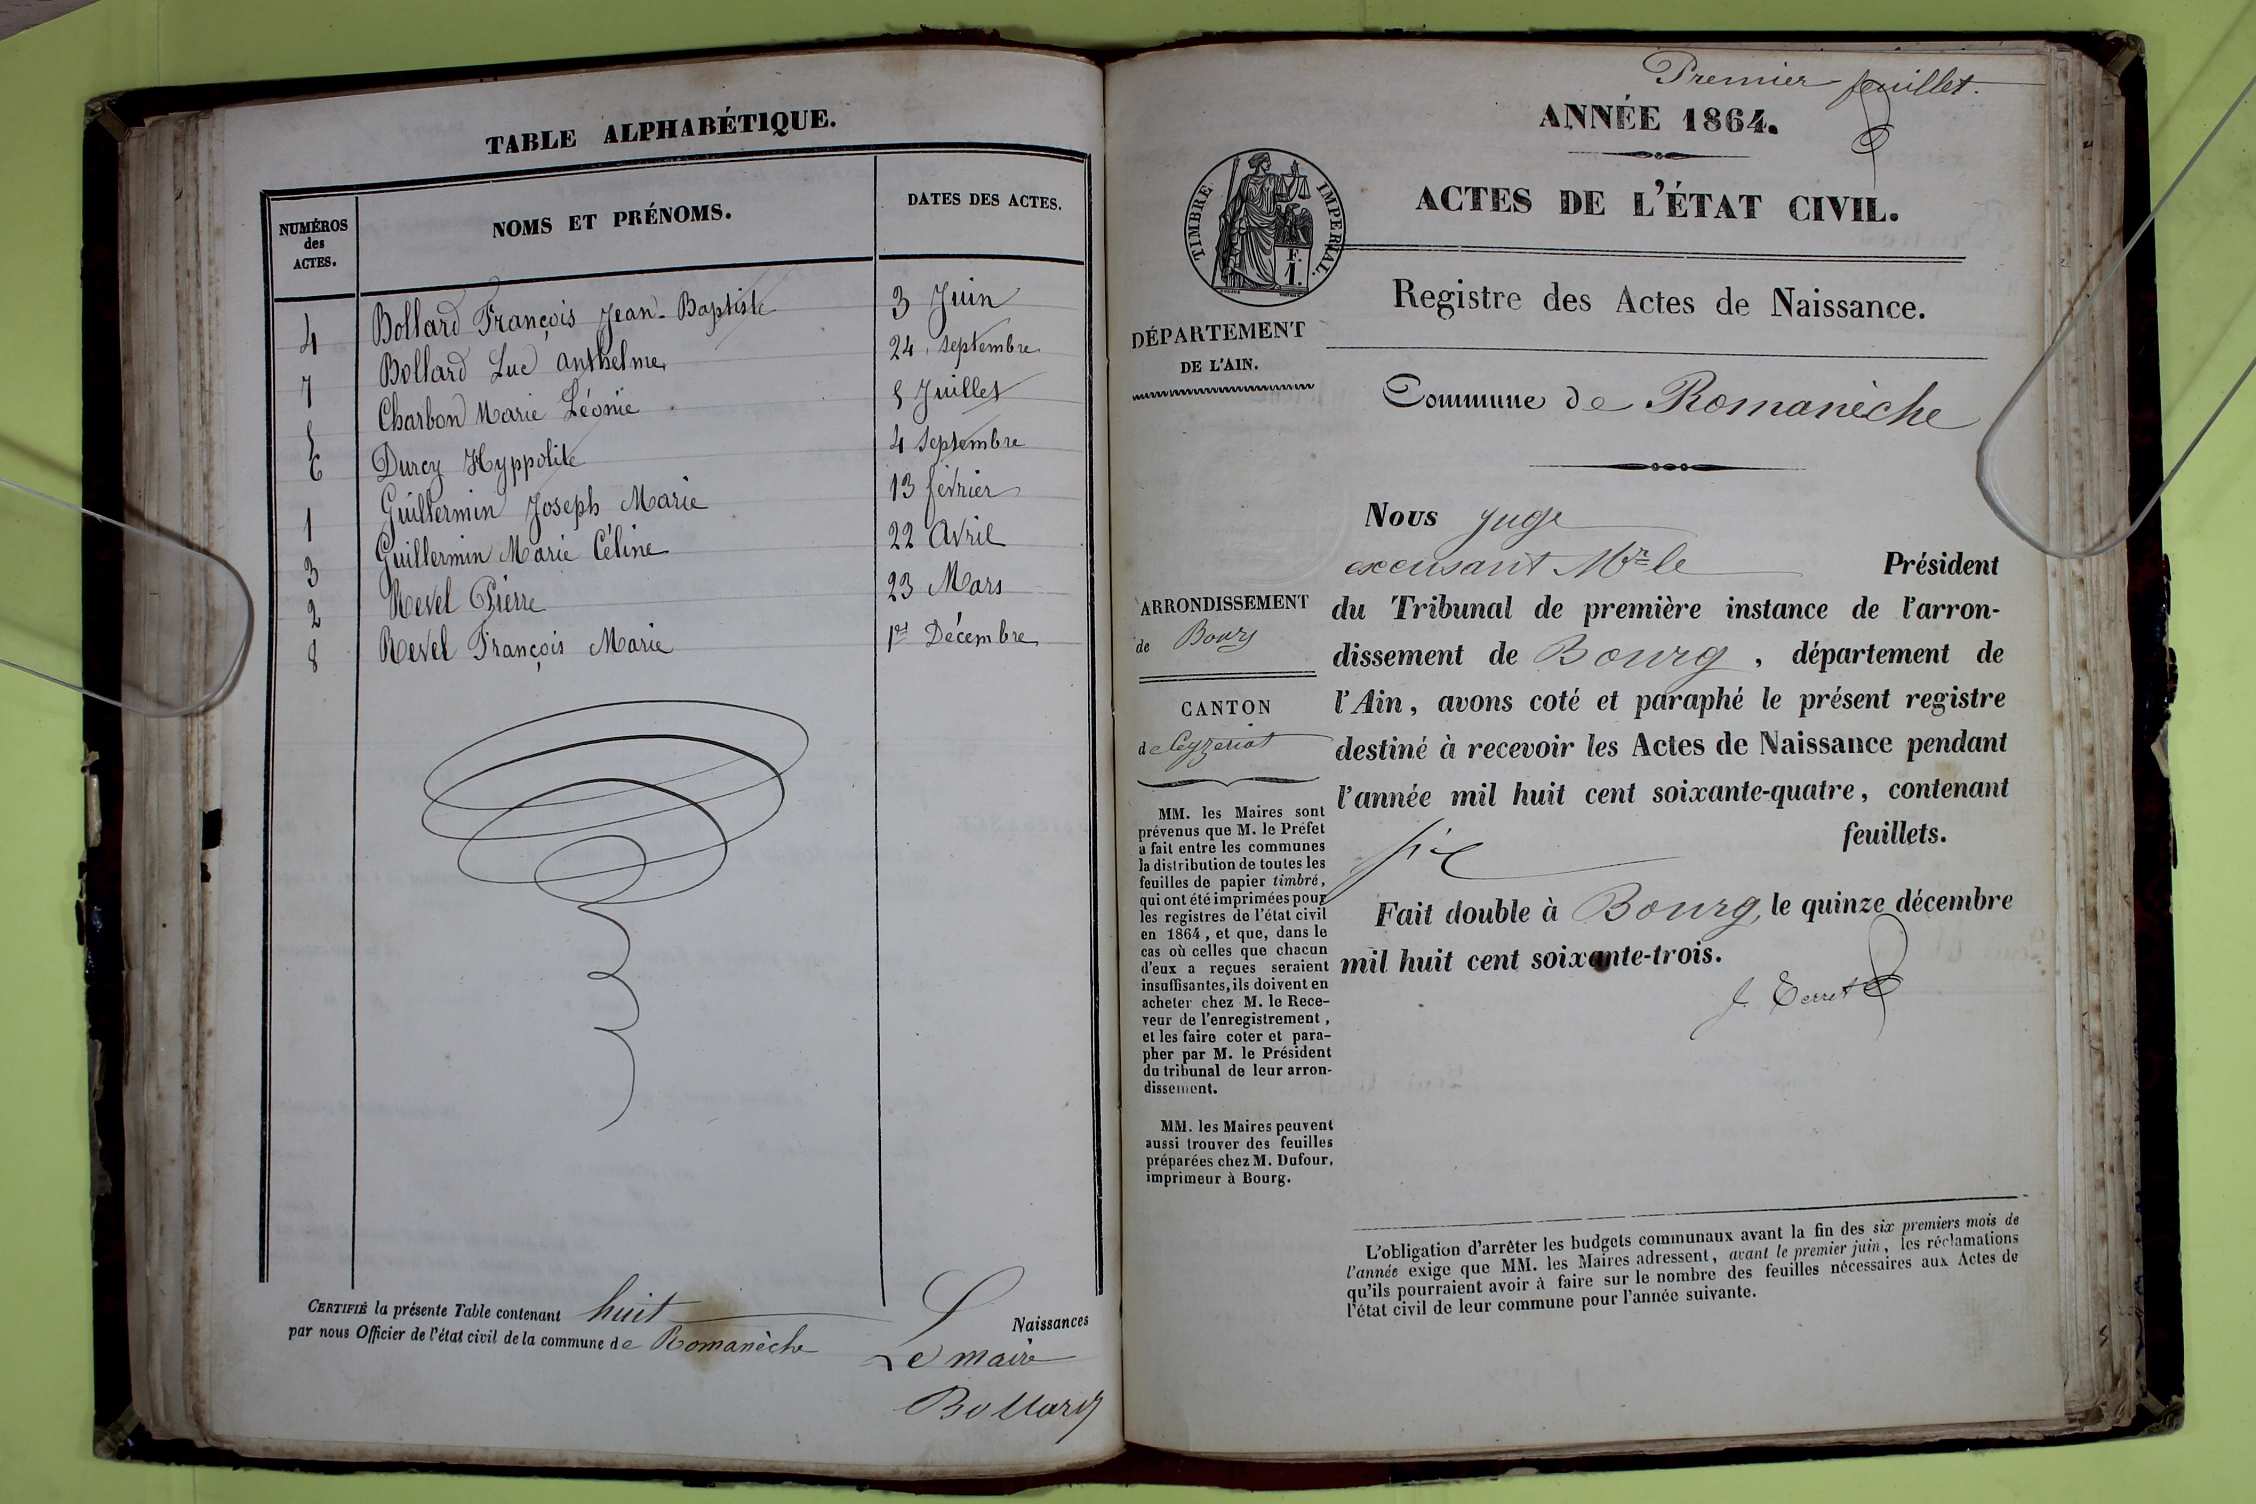 TABLE ALPHABÉTIQUE.
NUMÉROS
des
ACTES.
NOMS ET PRÉNOMS.
DATES DES ACTES.
4 Bollard François Jean-Baptiste 3 Juin
7 Bollard Luc anthelme 24 septembre
5 Charbon Marie Léonie 5 Juillet
6 Durey Hyppolite 4 septembre
1 Guillermin Joseph Marie 13 février
3 Guillermin Marie Céline 22 Avril
2 Revel Pierre 23 Mars
8 Revel François Marie 1er Décembre
CERTIFIÉ la présente Table contenant huit Naissances
par nous Officier de l'état civil de la commune de Romanèche
Le maire
Bollard
Premier feuillet.
ANNÉE 1864.
TIMBRE IMPERIAL.
F.
1.
ACTES DE L'ÉTAT CIVIL.
Registre des Actes de Naissance.
DÉPARTEMENT
DE L'AIN.
Commune de Romanèche
ARRONDISSEMENT
de Bourg
CANTON
de Ceyzeriat
MM. les Maires sont
prévenus que M. le Préfet
a fait entre les communes
la distribution de toutes les
feuilles de papier timbré,
qui ont été imprimées pour
les registres de l'état civil
en 1864, et que, dans le
cas où celles que chacun
d'eux a reçues seraient
insuffisantes, ils doivent en
acheter chez M. le Rece-
veur de l'enregistrement,
et les faire coter et para-
pher par M. le Président
du tribunal de leur arron-
dissement.
MM. les Maires peuvent
aussi trouver des feuilles
préparées chez M. Dufour,
imprimeur à Bourg.
Nous juge
excusant Mr le Président
du Tribunal de première instance de l'arron-
dissement de Bourg, département de
l'Ain, avons coté et paraphé le présent registre
destiné à recevoir les Actes de Naissance pendant
l'année mil huit cent soixante-quatre, contenant
six feuillets.
Fait double à Bourg, le quinze décembre
mil huit cent soixante-trois.
J. Terret
L'obligation d'arrêter les budgets communaux avant la fin des six premiers mois de
l'année exige que MM. les Maires adressent, avant le premier juin, les réclamations
qu'ils pourraient avoir à faire sur le nombre des feuilles nécessaires aux Actes de
l'état civil de leur commune pour l'année suivante.